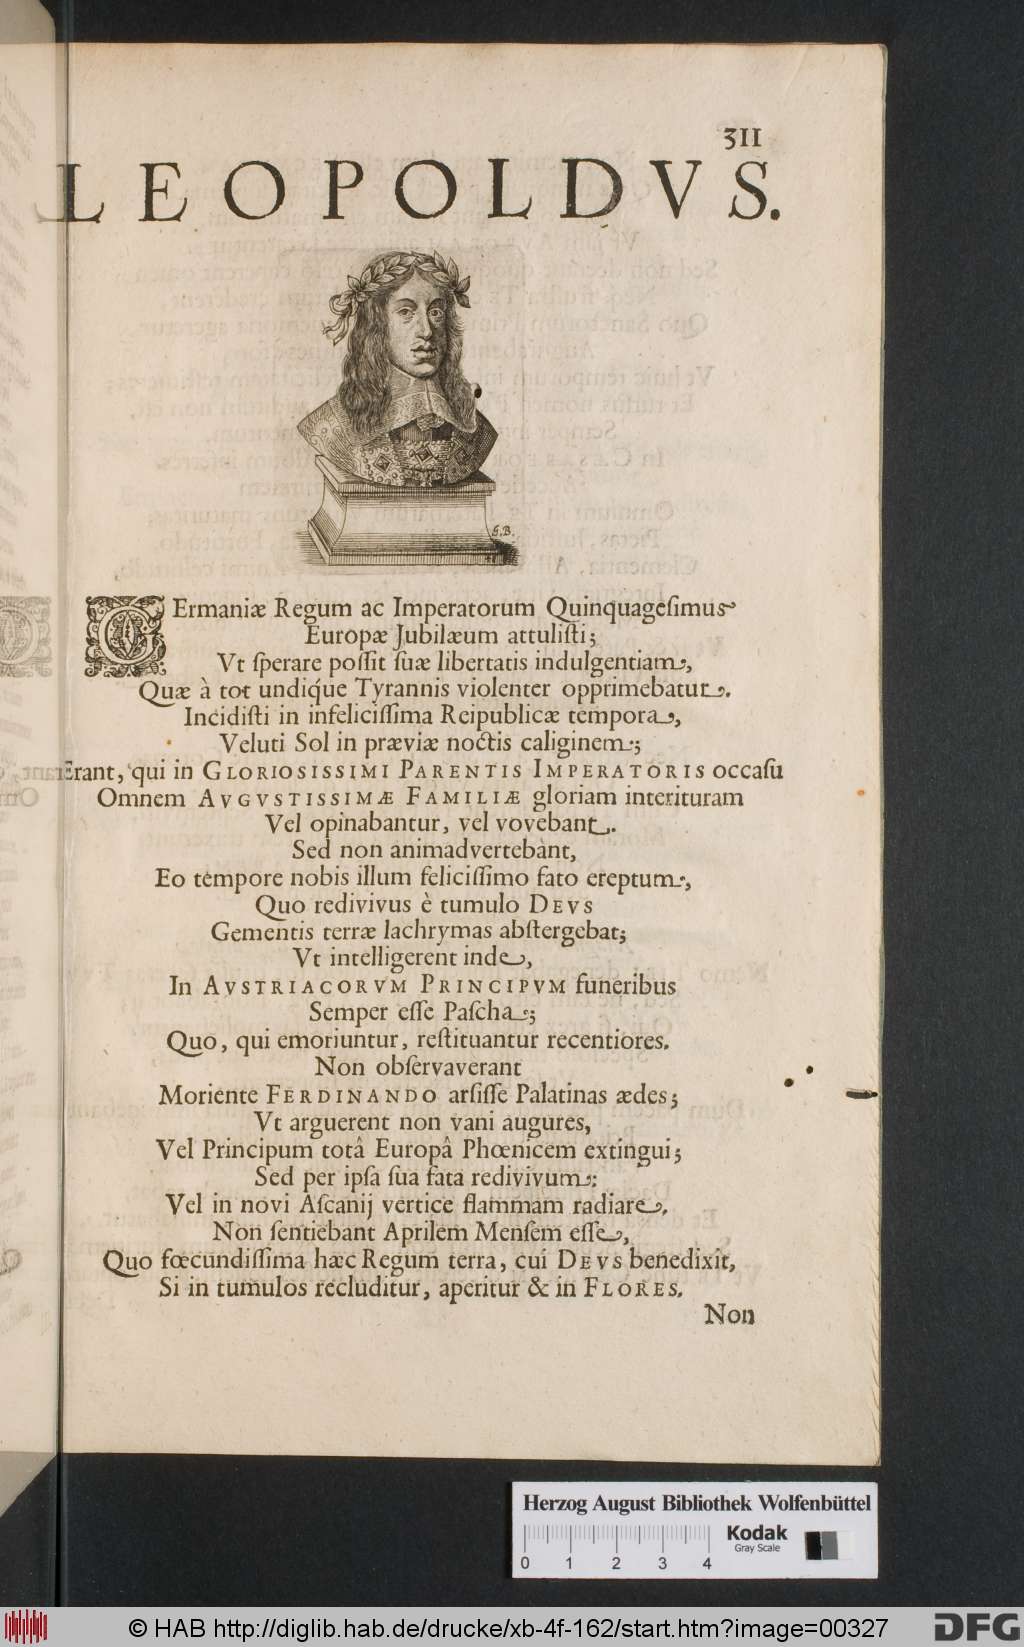 311
LEOPOLDVS.
G.B.
GErmaniæ Regum ac Imperatorum Quinquagesimus
Europæ Jubilæum attulisti;
Vt sperare possit suæ libertatis indulgentiam,
Quæ à tot undiq́ue Tyrannis violenter opprimebatur.
Incidisti in infelicissima Reipublicæ tempora,
Veluti Sol in præviæ noctis caliginem;
Erant, qui in GLORIOSISSIMI PARENTIS IMPERATORIS occasu
Omnem AVGVSTISSIMÆ FAMILIÆ gloriam interituram
Vel opinabantur, vel vovebant.
Sed non animadvertebànt,
Eo tempore nobis illum felicissimo fato ereptum,
Quo redivivus è tumulo DEVS
Gementis terræ lachrymas abstergebat;
Vt intelligerent inde,
In AVSTRIACORVM PRINCIPVM funeribus
Semper esse Pascha;
Quo, qui emoriuntur, restituantur recentiores.
Non observaverant
Moriente FERDINANDO arsisse Palatinas ædes;
Vt arguerent non vani augures,
Vel Principum totâ Europâ Phœnicem extingui;
Sed per ipsa sua fata redivivum:
Vel in novi Ascanij vertice flammam radiare.
Non sentiebant Aprilem Mensem esse,
Quo fœcundissima hæc Regum terra, cui DEVS benedixit,
Si in tumulos recluditur, aperitur & in FLORES.
Non
Herzog August Bibliothek Wolfenbüttel
Kodak
Gray Scale
0 1 2 3 4
© HAB http://diglib.hab.de/drucke/xb-4f-162/start.htm?image=00327
DFG